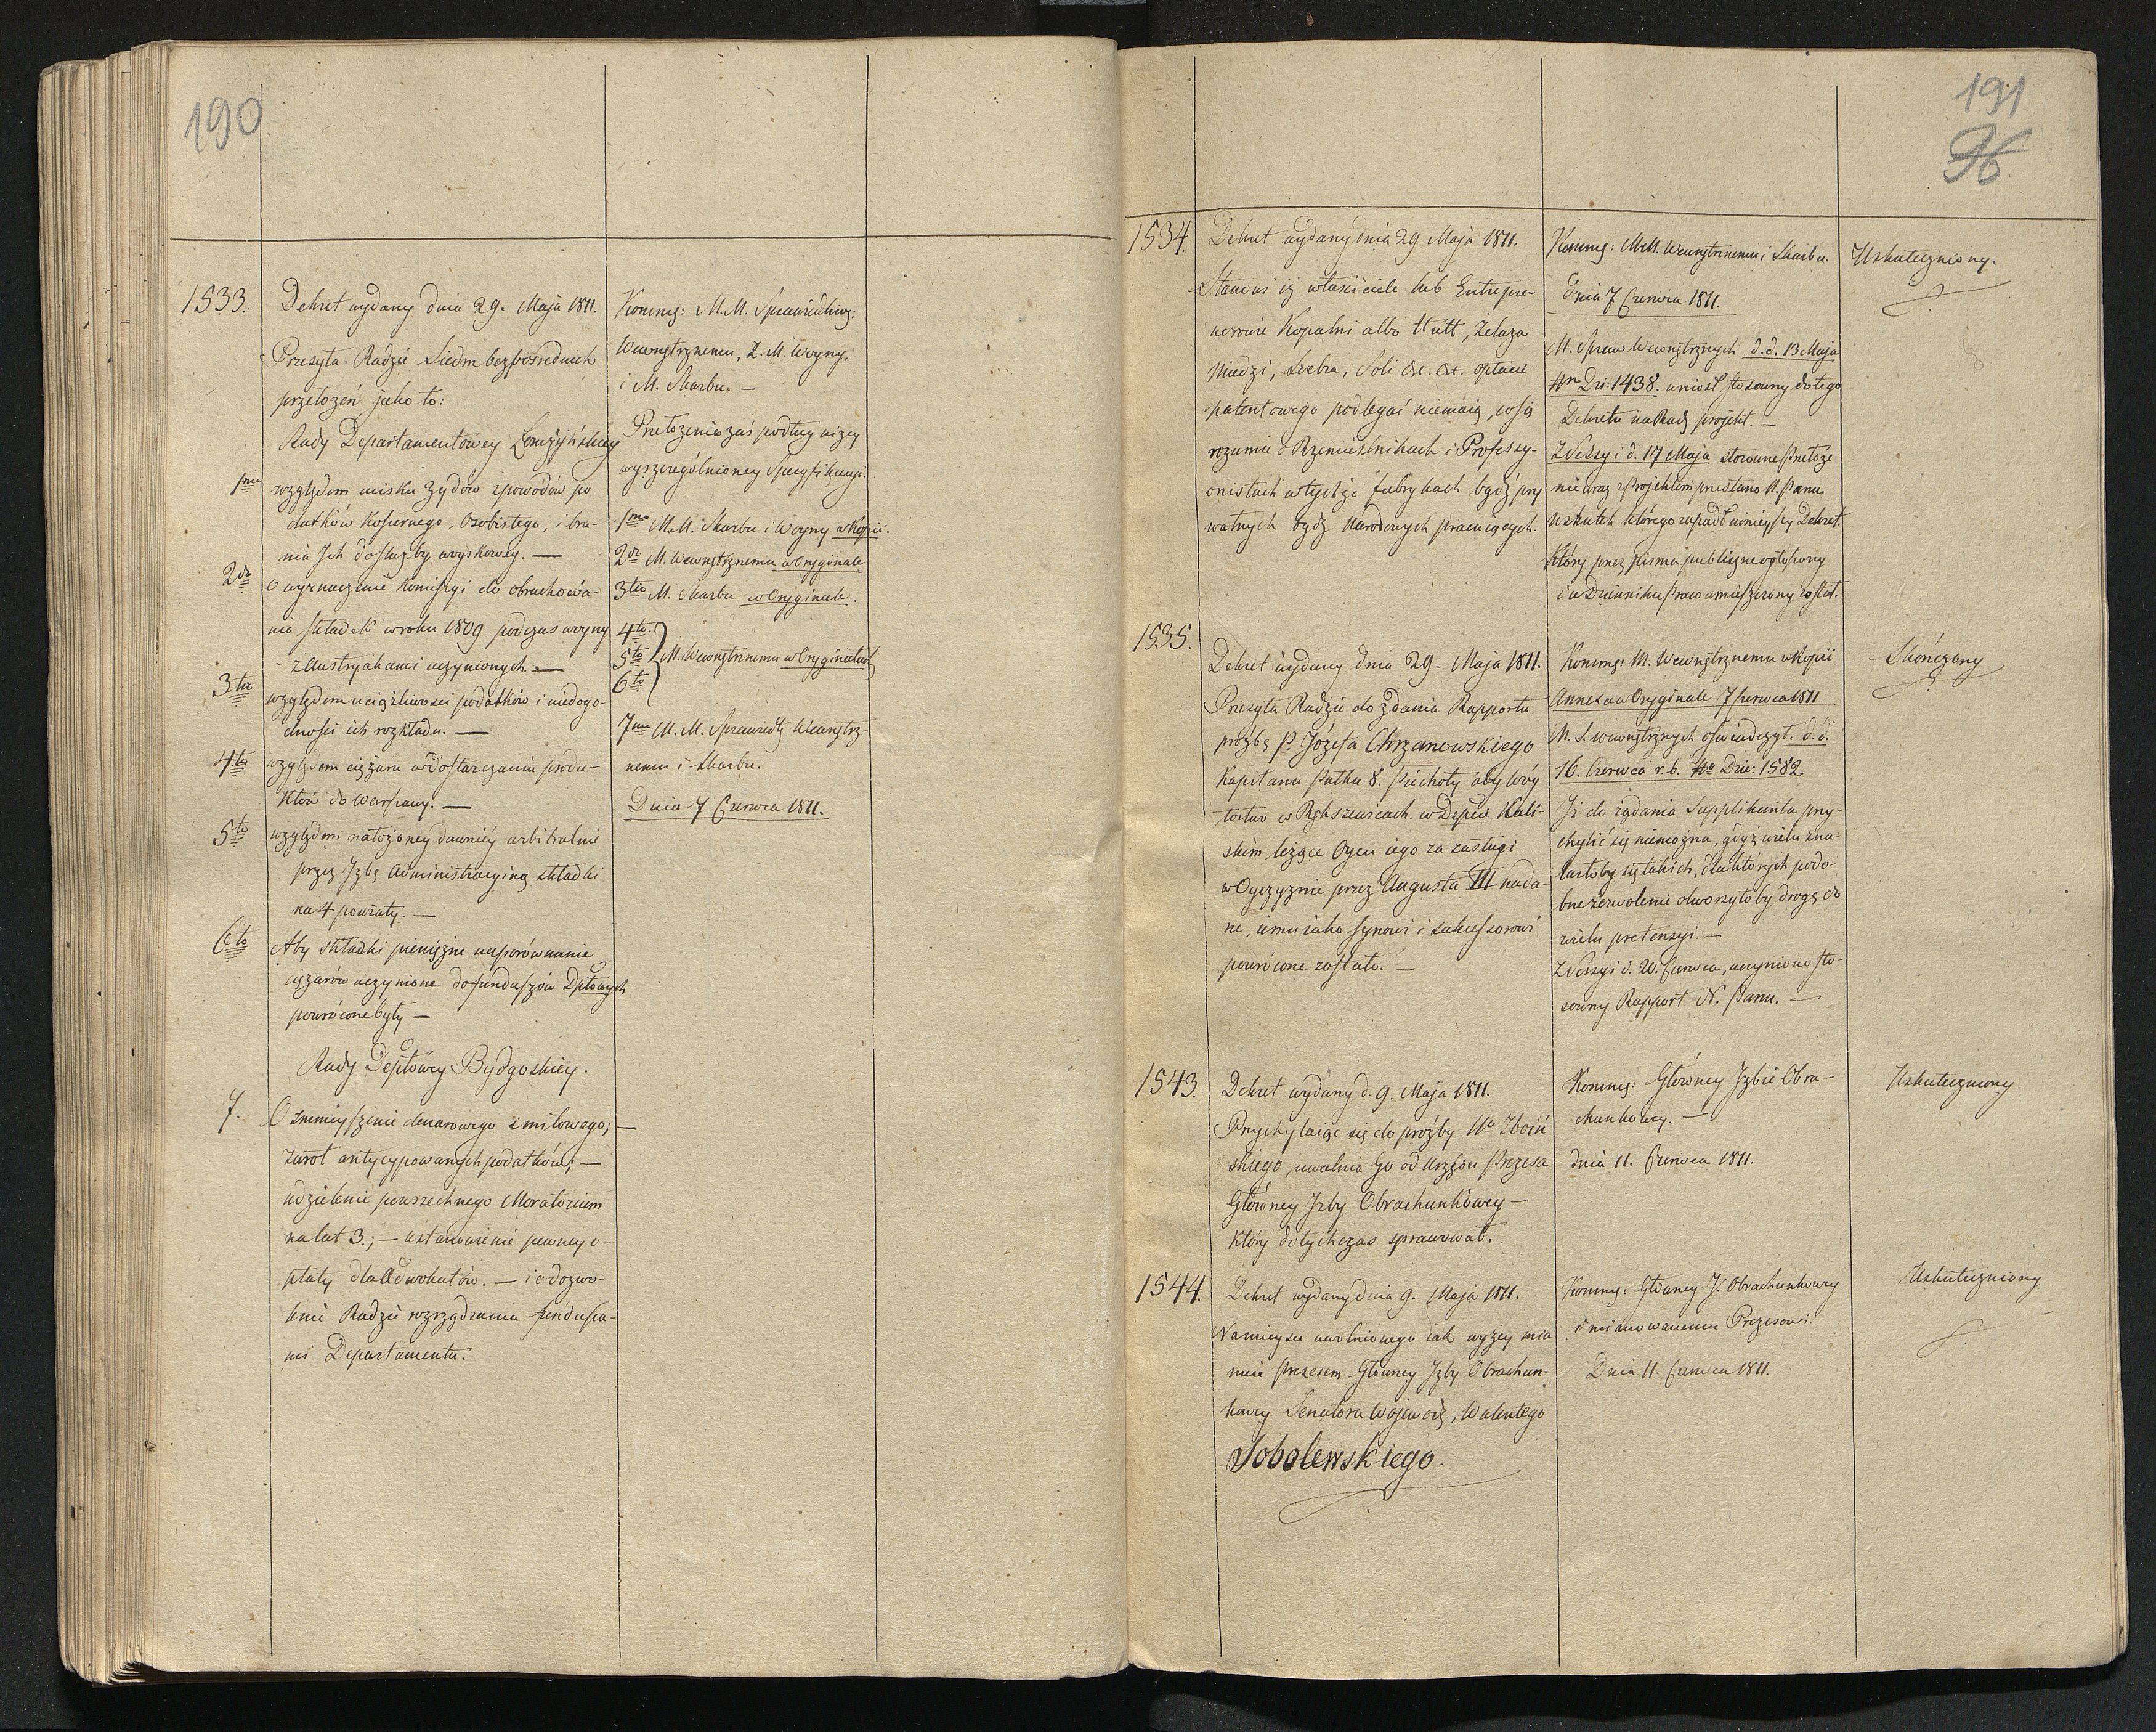 190
1533.
Dekret wydany dnia 29. Maja 1811.
Przesyła Radzie Siedm bezpośrednich
przełożeń jako to:
Rady Departamentowey Łomżyńskiey
1mo względem ucisku Żydów z powodów po
datków Koszernego, Osobistego, i bra-
nia Jch do służby woyskowey. —
2do o wyznaczenie Komissyi do obrachowa-
nia składek w roku 1809 podczas woyny
z Austryakami uczynionych. —
3tio względem uciążliwości podatków i niedogo-
dności ich rozkładu. —
4to względem ciężaru w dostarczaniu produ-
któw do Warszawy. —
5to względem nałożoney dawniéy arbitralnie
przez Jzbę Administracyiną składki
na 4 powiaty. —
6to Aby składki pieniężne na porównanie
ciężarów uczynione do funduszów Dptowych
powrócone były —
Rady Deptowey Bydgoskiey.
7. O zmnieyszenie denarowego i milowego; —
zwrot antycypowanych podatków; —
udzielenie powszechnego Moratorium
na lat 3.; — ustanowienie pewney o-
płaty dla Adwokatów. — i o dozwo-
lenie Radzie rozrządzania fundusza-
mi Departamentu.
Kommg: M. M. Sprawiedliwg:
Wewnętrznemu, Z. M. Woyny,
i M. Skarbu. —
Przełożenia zaś podług niżey
wyszczególnioney Specyfikacyi
1mo M. M. Skarbu i Woyny w Kopii.
2do M. Wewnętrznemu w Oryginale
3tio M. Skarbu w Oryginale.
4to.
5to M. Wewnętrznemu w Oryginałach
6to
7mo M. M. Sprawiedl: Wewnętrz-
nemu i Skarbu.
Dnia 7 Czerwca 1811.
191
96
1534.
Dekret wydany dnia 29 Maja 1811.
Stanowi iż właściciele lub Entrepre-
nerowie Kopalni albo Hutt, Żelaza
Miedzi, Srebra, Soli &c. &c. opłacie
patentowego podlegać niemaią, co się
rozumie o Rzemieślnikach i Professy-
onistach w tychże fabrykach bądź pry
watnych bądź Narodowych pracuiących.
Kommg: M.M. Wewnętrznemu i Skarbu.
Dnia 7 Czerwca 1811.
M. Spraw Wewnętrznych d. d. 13 Maja
Nro Dzi: 1438. uniósł stosowny do tego
Dekretu na Radę projekt. —
Z Sessyi d. 17 Maja stosowne Przełoże
nie wraz z Projektem przesłano N. Panu
w skutek którego zapadł ninieyszy Dekret.
który przez pisma publiczne ogłoszony
i w Dzienniku Praw umieszczony został.
Uskuteczniony.
1535.
Dekret wydany dnia 29. Maja 1811.
Przesyła Radzie do zdania Rapportu
prośbę P. Józefa Chrzanowskiego
Kapitana Pułku 8. Piechoty aby Wóy
tostwo w Rększewicach w Depcie Kali-
skim leżące Oycu iego za zasługi
w Oyczyznie przez Augusta III nada-
ne, iemu iako synowi i sukcessorowi
powrócone zostało. —
Kommg: M. Wewnętrznemu w Kopii
Annexa w Oryginale 7 Czerwca 1811
M. S. wewnętrznych oświadczył. d. d.
16. Czerwca r. b. No Dzie: 1582.
Jż do żądania Supplikanta przy-
chylić się niemożna, gdyż wielu zna-
lazłoby się takich, dla których podo-
bne zezwolenie otworzyłoby drogę do
wielu pretensyi. —
Z Sessyi d. 20. Czerwca, uczyniono sto-
sowny Rapport N. Panu. —
Skończony
1543.
Dekret wydany d. 9. Maja 1811.
Przychylaiąc się do prośby Wo Zboiń
skiego, uwalnia Go od Urzędu Prezesa
Główney Jzby Obrachunkowey —
który dotychczas sprawował.
Kommg: Główney Jzbie Obra-
chunkowey. —
dnia 11. Czerwca 1811.
Uskuteczniony.
1544.
Dekret wydany dnia 9. Maja 1811.
Na mieysce uwolnionego iak wyżey mia
nuie Prezesem Główney Jzby Obrachun-
kowey Senatora Wojewodę, Walentego
Sobolewskiego.
Kommg: Główney J. Obrachunkowey
i mianowanemu Prezesowi.
Dnia 11. Czerwca 1811.
Uskuteczniony